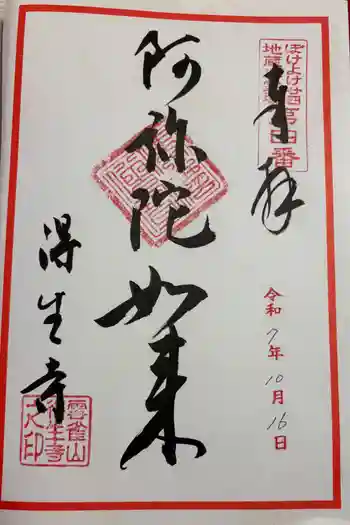 奉拝
ぼけよけ廿四
地蔵
第四番
阿弥陀如来
令和7年10月16日
得生寺
雲雀山
得生寺
之印